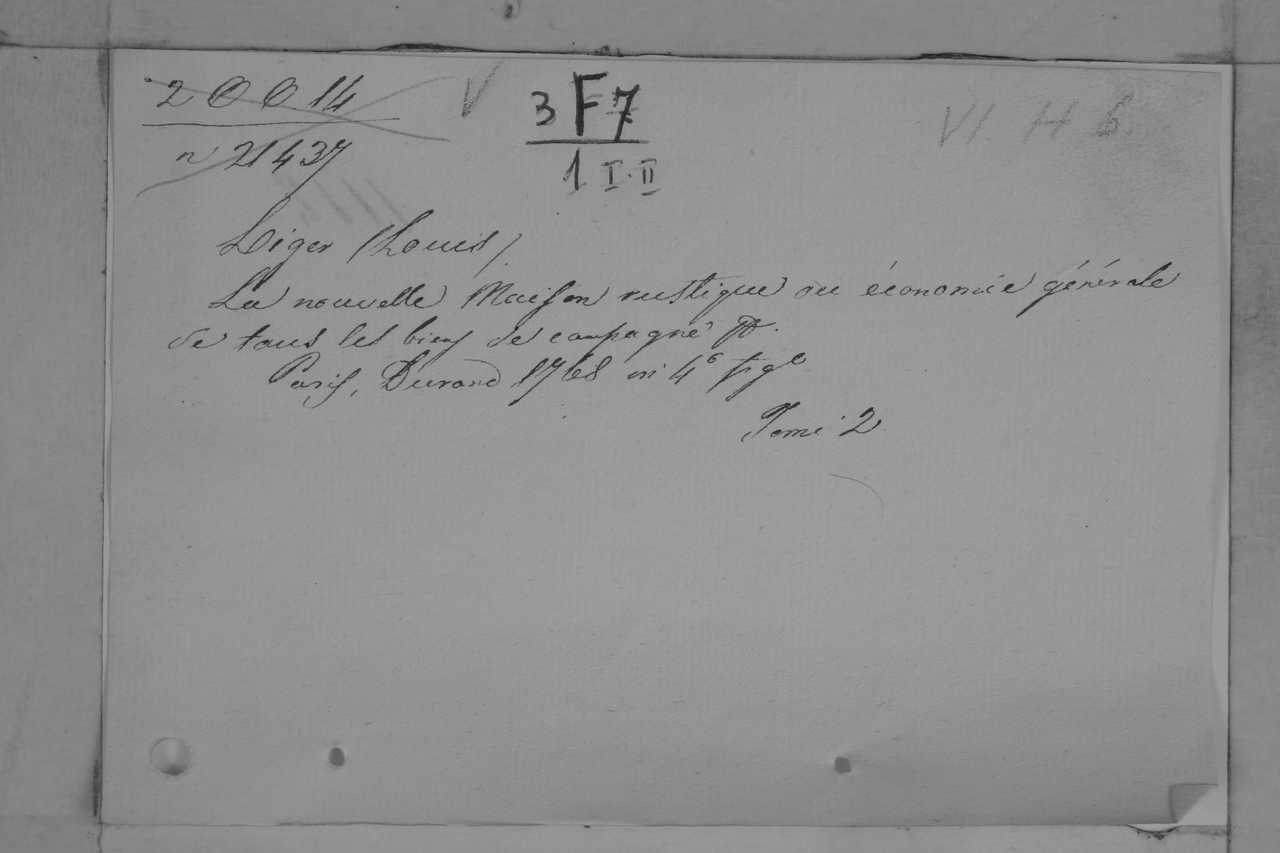 20014
n 21437
V
3 F 7
1 I-II
VI. H 6.
Liger (Louis)
La nouvelle Maison rustique ou économie générale
de tous les biens de campagne
Paris, Durand 1768 in 4°
Tome 2